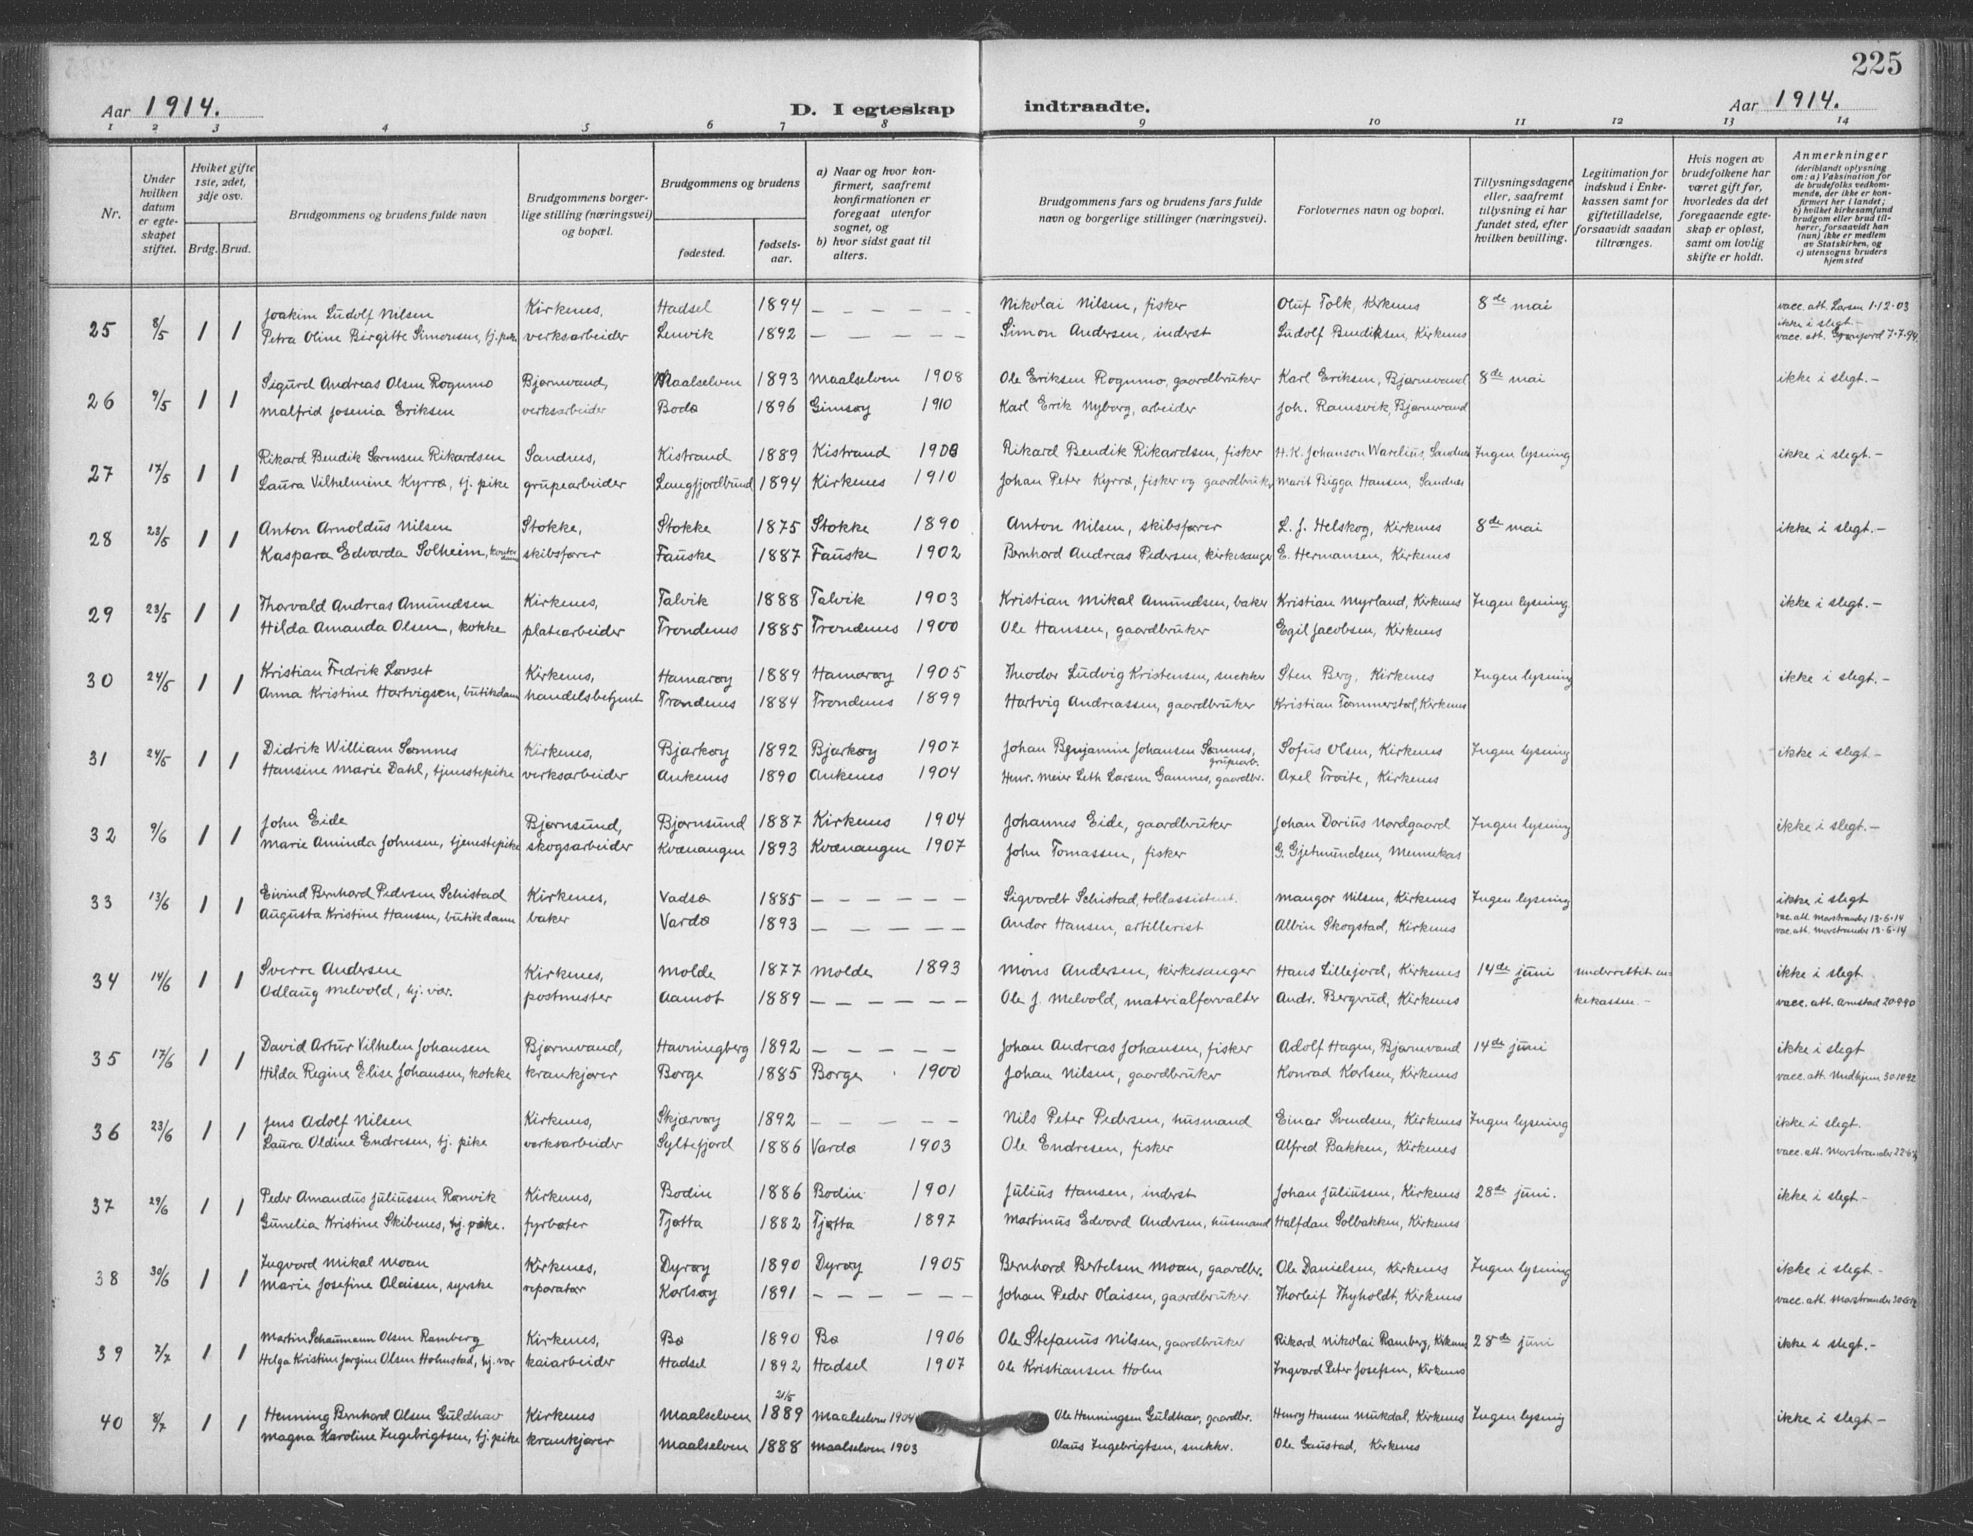 225
Aar 1914.
D. I egteskap indtraadte.
Aar 1914.
1 2 3 4 5 6 7 8 9 10 11 12 13 14
Nr.
Under hvilken datum er egteskapet stiftet.
Hviket gifte 1ste, 2det, 3dje osv.
Brdg. Brud.
Brudgommens og brudens fulde navn
Brudgommens borgerlige stilling (næringsvei) og bopæl.
Brudgommens og brudens
fødested.
fødselsaar.
a) Naar og hvor konfirmert, saafremt konfirmationen er foregaat utenfor sognet, og
b) hvor sidst gaat til alters.
Brudgommens fars og brudens fars fulde navn og borgerlige stillinger (næringsvei).
Forlovernes navn og bopæl.
Tillysningsdagene eller, saafremt tillysning ei har fundet sted, efter hvilken bevilling.
Legitimation for indskud i Enkekassen samt for giftetilladelse, forsaavidt saadan tiltrænges.
Hvis nogen av brudefolkene har været gift før, hvorledes da det foregaaende egteskap er opløst, samt om lovlig skifte er holdt.
Anmerkninger (deriblandt oplysning om: a) Vaksination for de brudefolks vedkommende, der ikke er konfirmert her i landet; b) hvilket kirkesamfund brudgom eller brud tilhører, forsaavidt han (hun) ikke er medlem av Statskirken, og c) utensogns bruders hjemsted
25 8/5 1 1 Joakim Ludolf Nilsen Kirkenes, Hadsel 1894 — — — — — — Nikolai Nilsen, fisker Oluf Tolk, Kirkenes 8de mai vacc. att. Larsen 1-12-03
ikke i slegt -
Petra Oline Birgitte Simonsen, tj. pike verksarbeider Lenvik 1892 — — — — — — Simon Andersen, inderst Ludolf Bendiksen, Kirkenes vacc. att. 7-7-94
26 9/5 1 1 Sigurd Andreas Olsen Rognmo Bjørnevand, Maalselven 1893 Maalselven 1908 Ole Eriksen Rognmo, gaardbruker Karl Eriksen, Bjørnevand 8de mai ikke i slegt. -
Malfrid Josenia Eriksen verksarbeider Bodø 1896 Gimsøy 1910 Karl Erik Nyborg, arbeider Joh. Ramsvik, Bjørnevand
27 17/5 1 1 Rikard Bendik Sørensen Rikardsen Sandnes, Kistrand 1889 Kistrand 1908 Rikard Bendik Rikardsen, fisker H. K. Johanson Warelius, Sandnes Ingen lysning ikke i slegt. -
Laura Vilhelmine Kyrrø, tj. pike grubearbeider Langfjordbund 1894 Kirkenes 1910 Johan Peter Kyrrø, fisker og gaardbruker Marit Bigga Hansen, Sandnes
28 23/5 1 1 Anton Arnoldus Nilsen Stokke, Stokke 1875 Stokke 1890 Anton Nilsen, skibsfører L. J. Helskog, Kirkenes 8de mai ikke i slegt. -
Kaspara Edvarda Solheim, skibsfører Fauske 1887 Fauske 1902 Bernhard Andreas Pedersen, kirkesanger E. Hermansen, Kirkenes
29 23/5 1 1 Thorvald Andreas Amundsen Kirkenes, Talvik 1888 Talvik 1903 Kristian Mikal Amundsen, baker Kristian Myrland, Kirkenes Ingen lysning ikke i slegt. -
Hilda Amanda Olsen, kokke platearbeider Trondenes 1885 Trondenes 1900 Ole Hansen, gaardbruker Egil Jacobsen, Kirkenes
30 24/5 1 1 Kristian Fredrik Løvset Kirkenes, Hamarøy 1889 Hamarøy 1905 Theodor Ludvig Kristensen, snekker Sten Berg, Kirkenes Ingen lysning ikke i slegt. -
Anna Kristine Hartvigsen, butikdame handelsbetjent Trondenes 1884 Trondenes 1899 Hartvig Andreassen, gaardbruker Kristian Tømmerstøl, Kirkenes
31 24/5 1 1 Didrik William Sømnes Kirkenes, Bjarkøy 1892 Bjarkøy 1907 Johan Benjamine Johansen Sømnes, grupearb. Sofus Olsen, Kirkenes Ingen lysning ikke i slegt -
Hansine Marie Dahl, tjenestepike verksarbeider Ankenes 1890 Ankenes 1904 Henr. Meier Leth Larsen Gamnes, gaardbr. Axel Trøite, Kirkenes
32 9/6 1 1 John Eide Bjørnsund, Bjørnsund 1887 Kirkenes 1904 Johannes Eide, gaardbruker Johan Dorius Nordgaard Ingen lysning ikke i slegt. -
Marie Aminda Johnsen, tjenestepike skogsarbeider Kvænangen 1893 Kvænangen 1907 John Tomassen, fisker G. Gjetmundsen, Mennekas
33 13/6 1 1 Eivind Bernhard Pedersen Schistad Kirkenes, Vadsø 1885 — — — — — — Sigvardt Schistad, toldassistent. Mangor Nilsen, Kirkenes Ingen lysning ikke i slegt
vac. att. Morstrander 13-6-14
Augusta Kristine Hansen, butikdame baker Vardø 1893 — — — — — — Andor Hansen, artillerist Albin Skogstad, Kirkenes vac. att. Morstrander 13-6-14
34 14/6 1 1 Sverre Andersen Kirkenes, Molde 1877 Molde 1893 Mons Andersen, kirkesanger Hans Lillejord, Kirkenes 14de juni underrettet en- ikke i slegt
Odlaug Melvold, hj. vær. postmester Aamot 1889 — — — — — — Ole J. Melvold, materialforvalter Andr. Bergrud, Kirkenes kekassen. - vacc. att. Amstad 20-9-90
35 17/6 1 1 David Artur Vilhelm Johansen Bjørnevand, Havningberg 1892 — — — — — Johan Andreas Johansen, fisker Adolf Hagen, Bjørnevand 14de juni ikke i slegt
Hilda Regine Elise Johansen, kokke krankjører Borge 1885 Borge 1900 Johan Nilsen, gaardbruker Konrad Karlsen, Kirkenes vacc. att. 30 10 92
36 23/6 1 1 Jens Adolf Nilsen Kirkenes, Skjærvøy 1892 — — — — — Nils Peter Pedersen, husmand Einar Svendsen, Kirkenes Ingen lysning ikke i slegt.
Laura Oldine Endresen, tj. pike verksarbeider Syltefjord 1886 Vardø 1903 Ole Endresen, fisker Alfred Bakken, Kirkenes vacc. att. Morstrander 22-6-14
37 29/6 1 1 Peder Amandus Juliussen Rønvik Kirkenes, Bodin 1886 Bodin 1901 Julius Hansen, inderst Johan Juliussen, Kirkenes 28de juni. ikke i slegt -
Gunelia Kristine Skibenes, hj. pike. fyrbøter Tjøtta 1882 Tjøtta 1897 Martinus Edvard Andersen, husmand Halfdan Solbakken, Kirkenes
38 30/6 1 1 Ingvard Mikal Moan Kirkenes, Dyrøy 1890 Dyrøy 1905 Bernhard Bertelsen Moan, gaardbr. Ole Danielsen, Kirkenes Ingen lysning ikke i slegt -
Marie Josefine Olaisen, syerske reparatør Karlsøy 1891 — — — — — — Johan Peder Olaisen, gaardbruker Thorleif Thyholdt, Kirkenes vacc. att. Morstrander 30-6-14
39 7/7 1 1 Martin Schaumann Olsen Ramberg Kirkenes, Bø 1890 Bø 1906 Ole Stefanus Nilsen, gaardbruker Rikard Nikolai Ramberg, Kirkenes 28de juni ikke i slegt. -
Helga Kristine Jørgine Olsen Holmstad, hj. vær kaiarbeider Hadsel 1892 Hadsel 1907 Ole Kristiansen Holm Ingvard Peter Josefsen, Kirkenes
21/5
40 8/7 1 1 Henning Bernhard Olsen Guldhav Kirkenes Maalselven 1889 Maalselven 1904 Ole Henningsen Guldhav, gaardbr. Henry Hansen Mukdal, Kirkenes Ingen lysning ikke i slegt -
Magna Karoline Ingebrigtsen, tj. pike krankjører Maalselven 1888 Maalselven 1903 Olaus Ingebrigtsen, snekker. Ole Gaustad, Kirkenes